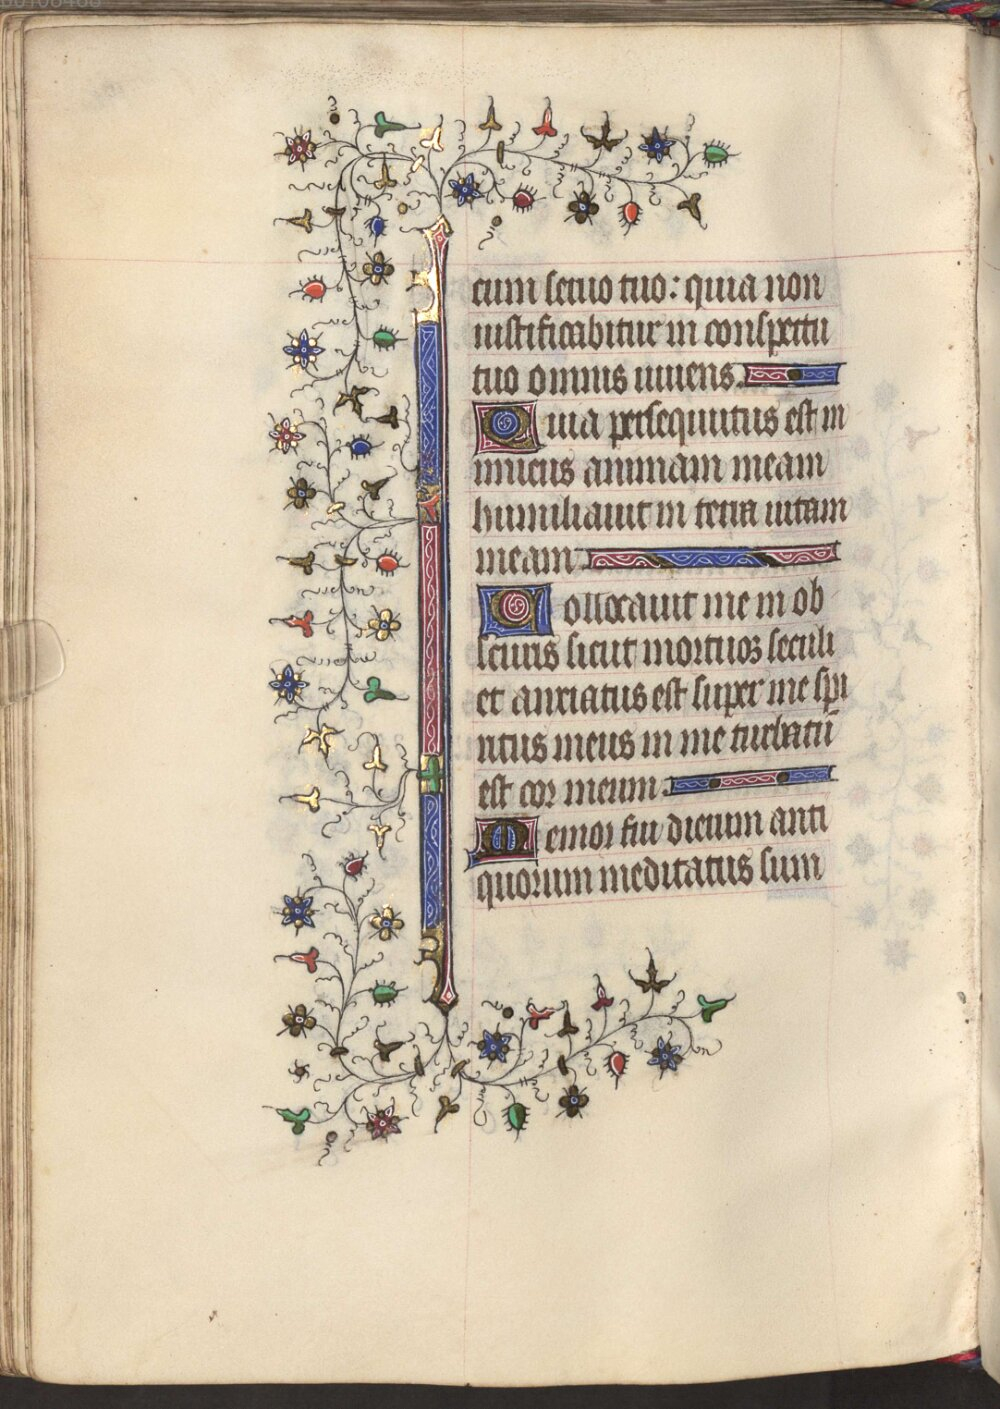 cum seruo tuo: quia non
iustificabitur in conspectu
tuo omnis uiuens.
Quia persequutus est in
imicus animam meam
humiliauit in terra uitam
meam
Collocauit me in ob
scuris sicut mortuos seculi
et anxiatus est super me spi
ritus meus in me turbatū
est cor meum.
Memor fui dierum anti
quorum meditatus sum